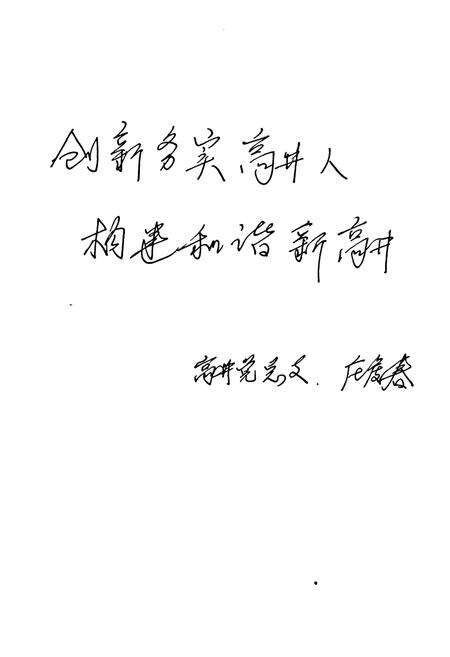 创新务实高井人
构建和谐新高井
高井党总支